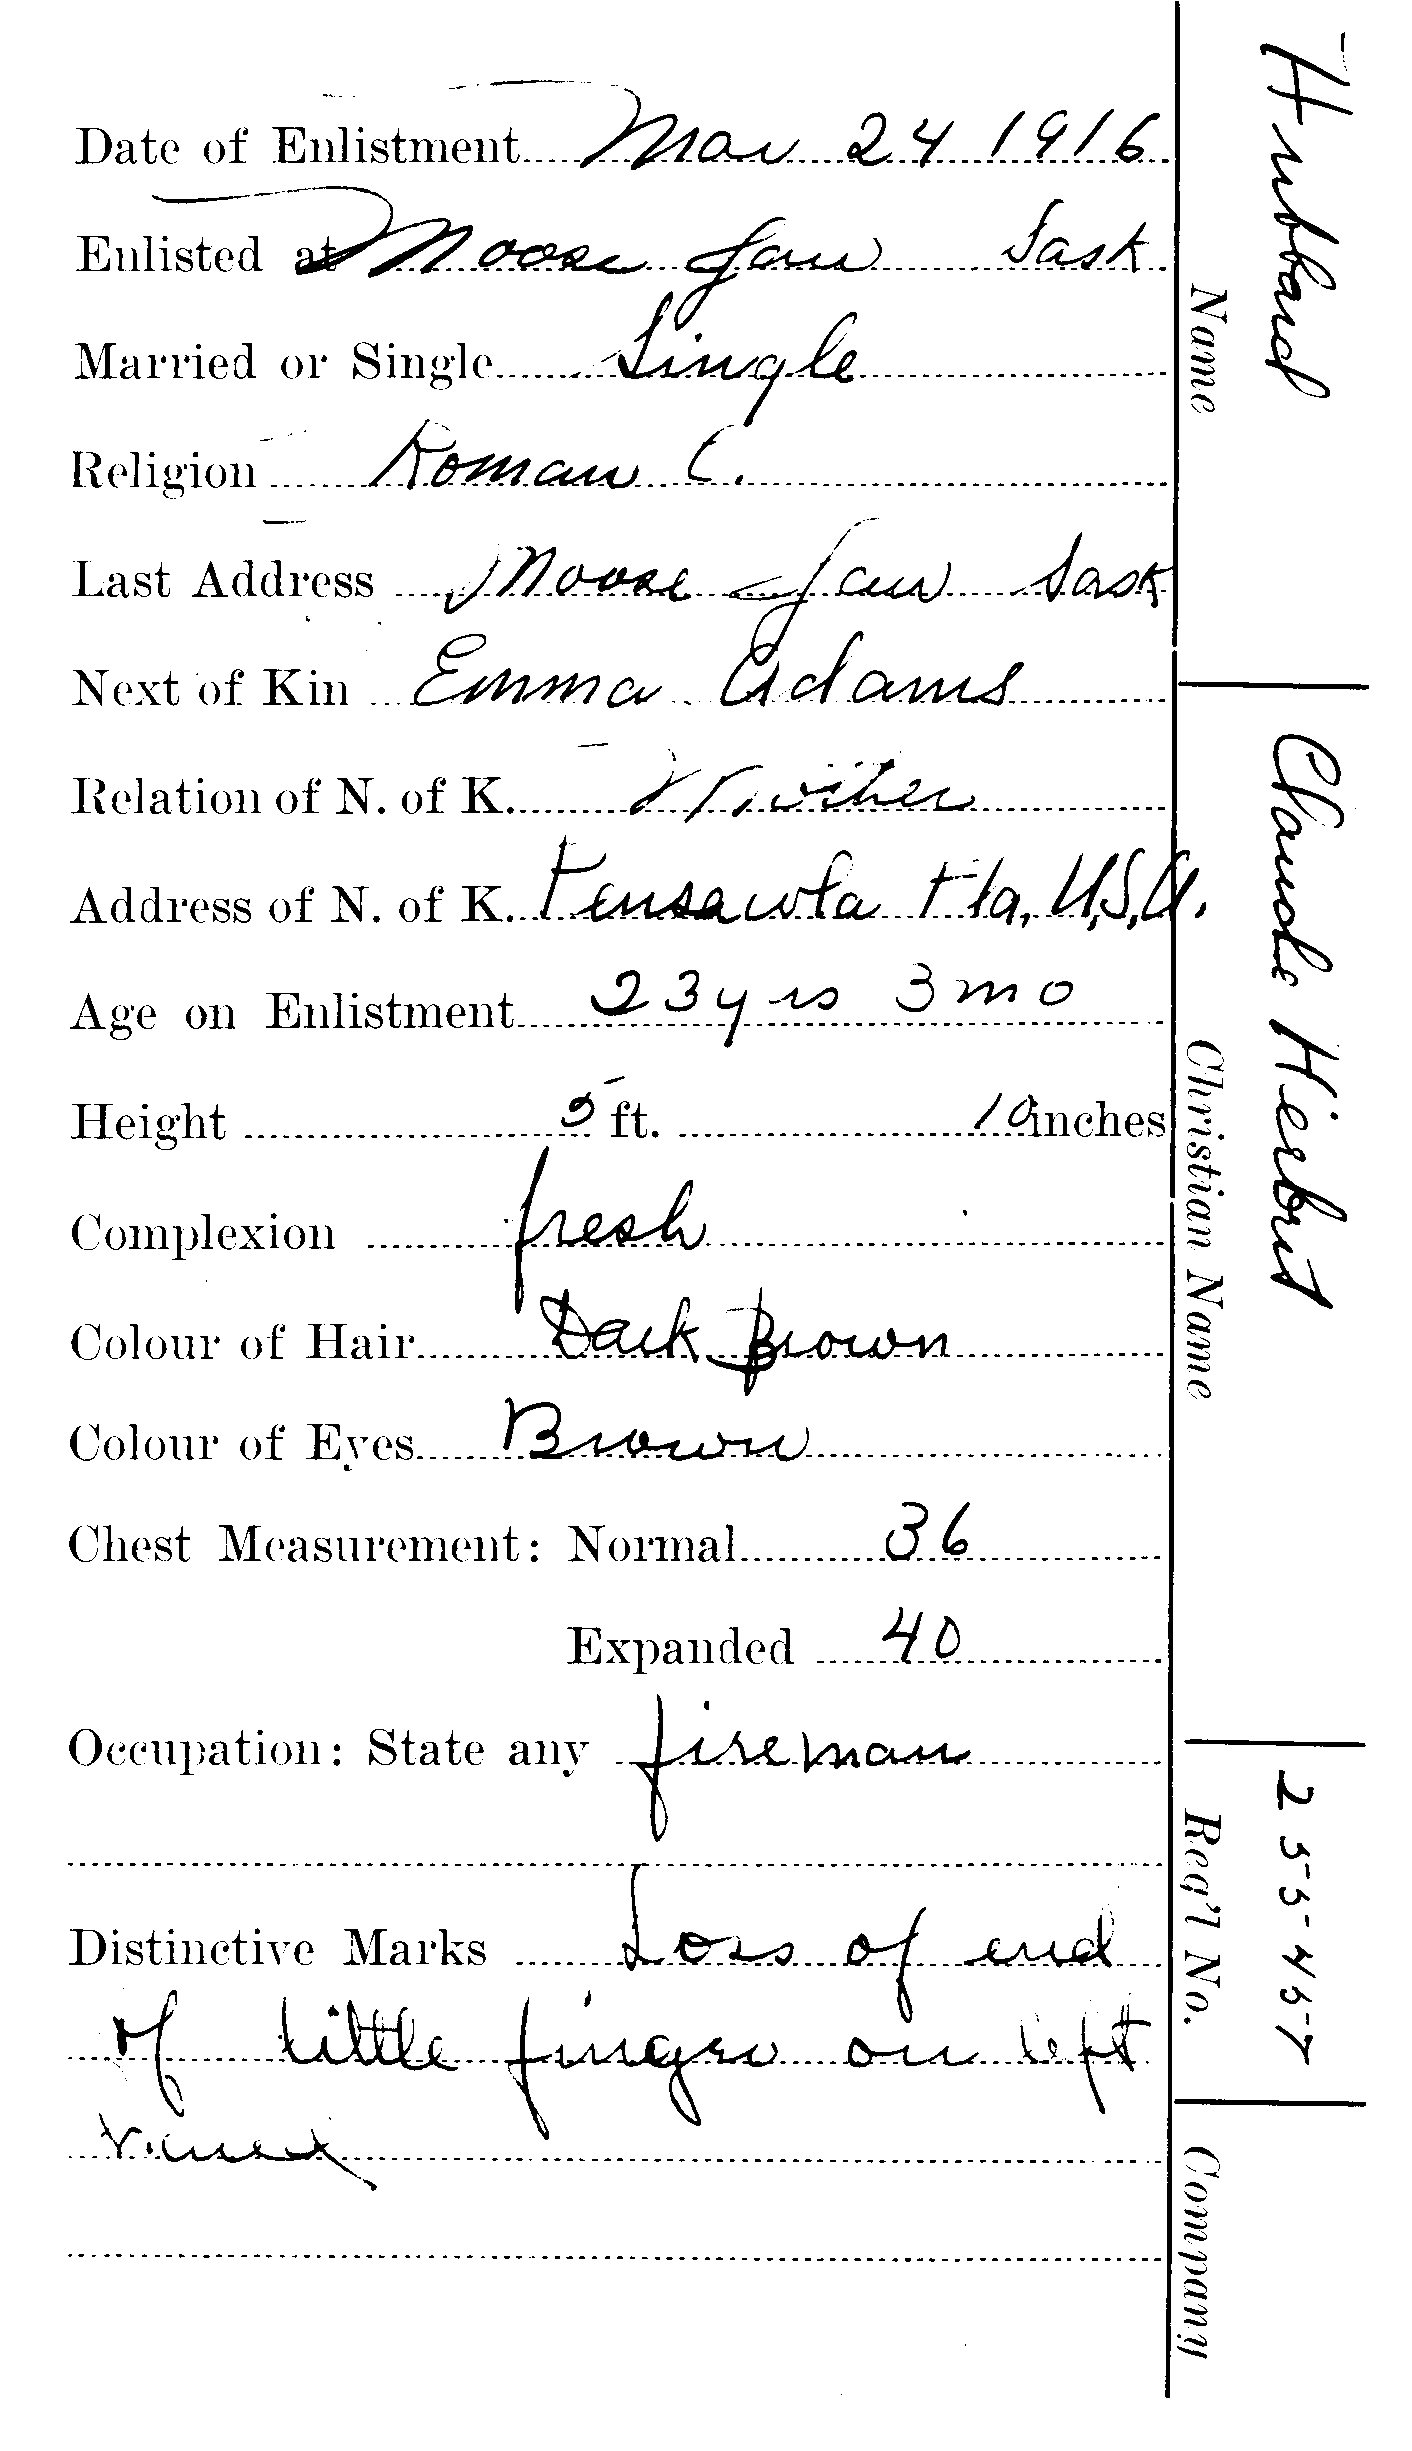 Date of Enlistment Mar 24 1916
Enlisted at Moose Jaw Sask
Married or Single Single
Religion Roman C.
Last Address Moose Jaw Sask
Next of Kin Emma Adams
Relation of N. of K. Mother
Address of N. of K. Pensacola Fla, U.S.A.
Age on Enlistment 23 yrs 3 mo
Height 5 ft. 10 inches
Complexion fresh
Colour of Hair Dark Brown
Colour of Eyes Brown
Chest Measurement: Normal 36
Expanded 40
Occupation: State any fireman
Distinctive Marks Loss of end
of little finger on left
hand
Hubbard
Name
Claude Herbert
Christian Name
255457
Reg'l No.
Company